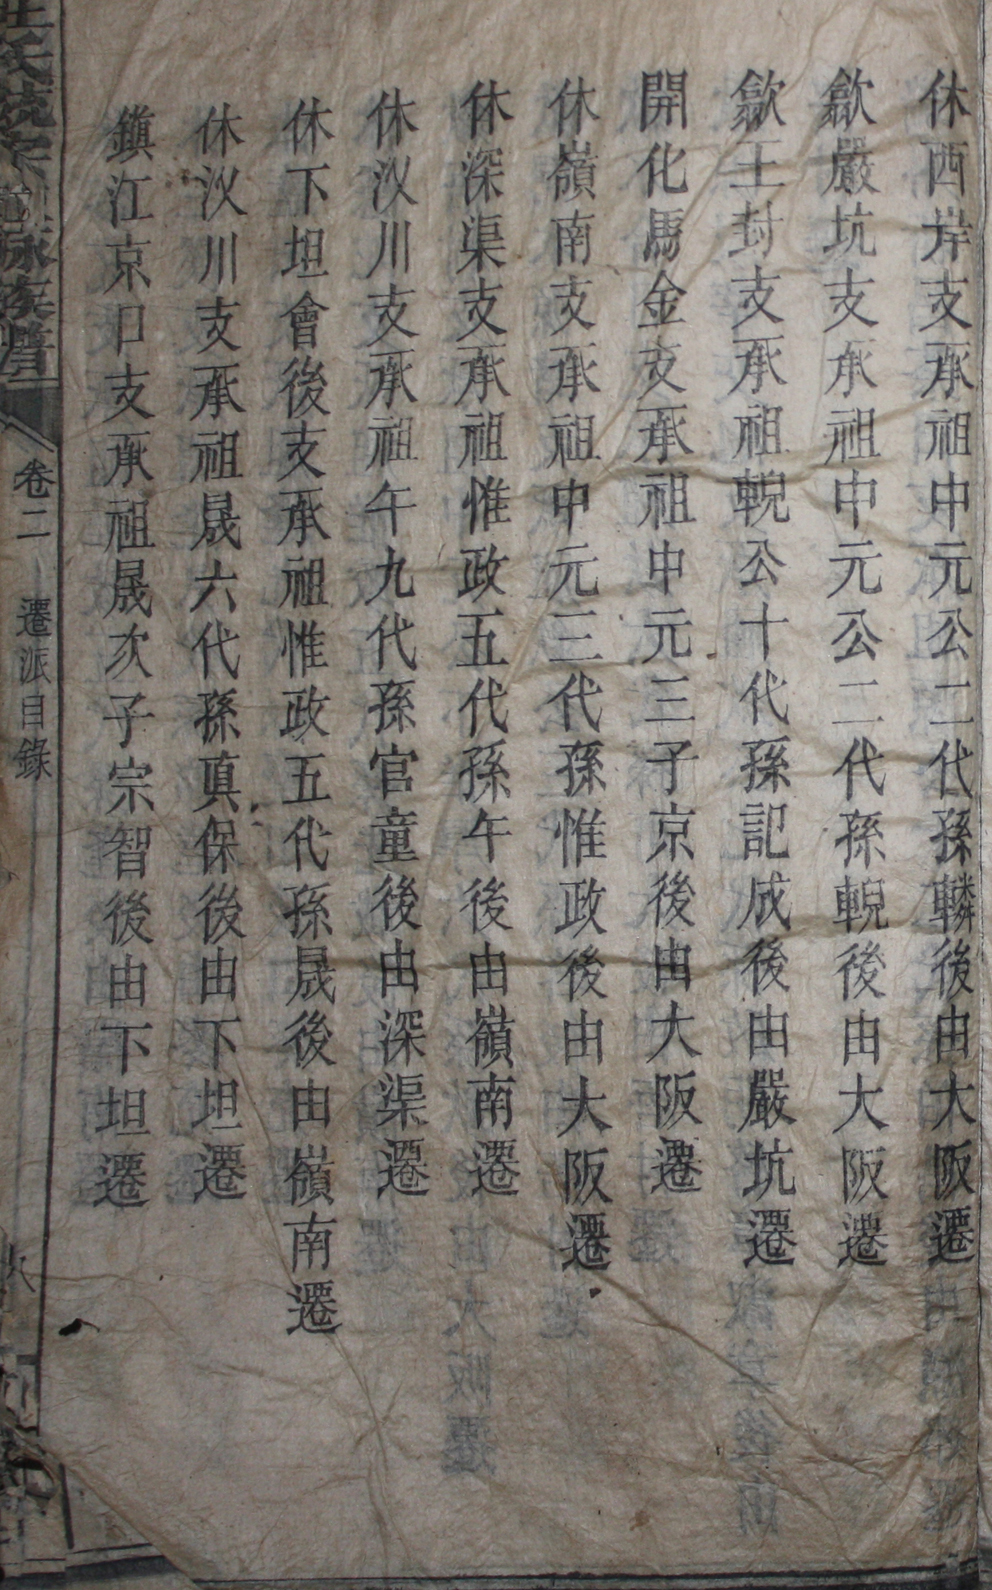 休西岸支承祖中元公二代孫轔後由大阪遷
歙嚴坑支承祖中元公二代孫輗後由大阪遷
歙王封支承祖輗公十代孫記成後由嚴坑遷
開化馬金支承祖中元三子京後由大阪遷
休嶺南支承祖中元三代孫惟政後由大阪遷
休深渠支承祖惟政五代孫午後由嶺南遷
休汊川支承祖午九代孫官童後由深渠遷
休下坦會後支承祖惟政五代孫晟後由嶺南遷
休汊川支承祖晟六代孫真保後由下坦遷
鎮江京口支承祖晟次子宗智後由下坦遷
氏統宗 脉族譜 卷二 遷派目錄